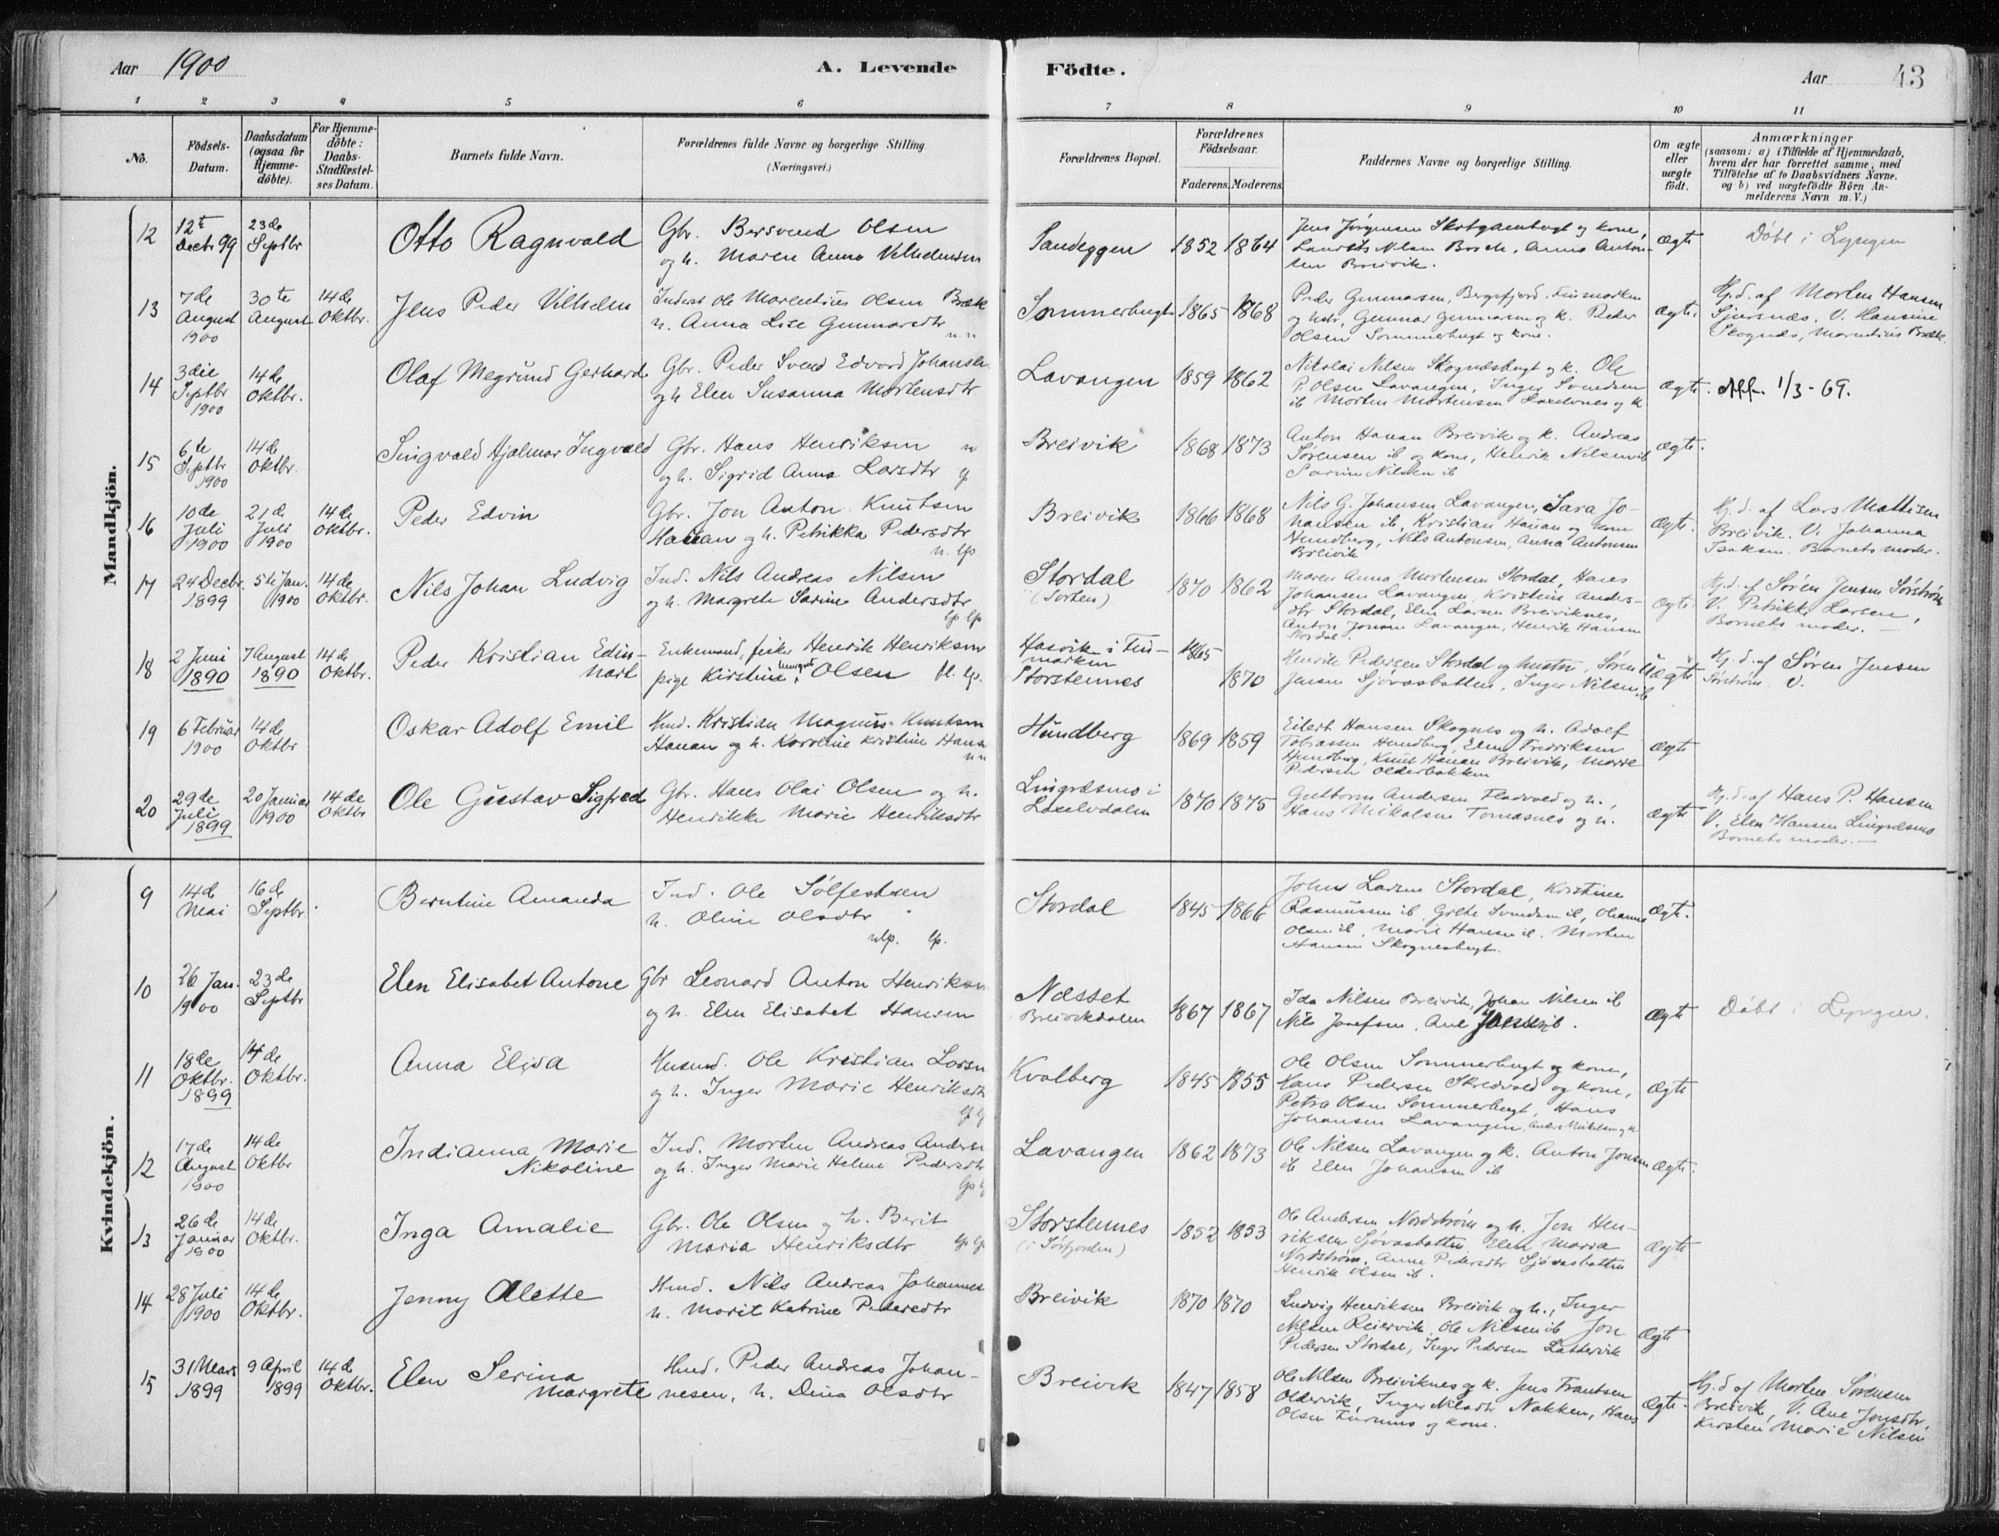 Aar 1900
A. Levende Födte.
Aar 43
1 2 3 4 5 6 7 8 9 10 11
No.
Födsels-Datum.
Daabsdatum (ogsaa for Hjemme-döbte).
For Hjemme-döbte: Daabs-Stadfæstel-ses Datum.
Barnets fulde Navn.
Forældrenes fulde Navne og borgerlige Stilling. (Næringsvei.)
Forældrenes Bopæl.
Forældrenes Födselsaar.
Faderens. Moderens.
Faddernes Navne og borgerlige Stilling.
Om ægte eller uægte födt.
Anmærkninger
(saasom: a) i Tilfælde af Hjemmedaab, hvem der har forrettet samme, med Tilföielse af to Daabsvidners Navne, og b) ved uægtefödte Börn An-melderens Navn m. V.)
Mandkjön.
12 12te Decbr 99 23de Septbr Otto Ragnvald Gbr. Bersvend Olsen
og h. Maren Anna Vilhelmsen
Sandeggen 1852 1864 Jens Jörgensen Skotgambugt og kone,
Breivik. ægte Döbt i Lyngen
13 7de August 1900 30te August 14de Oktbr. Jens Peder Vilhelm Inderst Ole Marentius Olsen
h. Anna Lise Gunnarsdtr
Sommerbugt 1865 1868 Peder Gunnarsen, Bergsfjord, Finmarken
og hstr, Gunnar Gunnarsen og k. Peder
Olsen Sommerbugt og kone. ægte. Hj.d. af Morten Hansen
Sjursnæs. V. Hansine
Skognæs, Marentius
14 3die Septbr 1900 14de Oktbr. Olaf Megrund Gerhard Gbr. Peder Svend Edvard Johansen
og h Elen Susanna Mortensdtr
Lavangen 1859 1862 Nikolai Nilsen Skognæsbugt og k. Ole
P. Olsen Lavangen, Inger Svendsen
ib Morten Mortensen Lakselvnes og k. ægte. 1/3-69.
15 6te Septbr 1900 14de Oktbr. Singvald Hjalmar Ingvald Gbr. Hans Henriksen n
og h. Sigrid Anna Larsdtr
Breivik 1868 1873 Anton Hanan Breivik og k. Andreas
Sörensen ib og kone, Henrik Nilsen ib
Nilsen ib ægte.
16 10de Juli 1900 21de Juli 1900 14de Oktbr. Peder Edvin Gbr. Jon Anton Knutsen
Hanan og h. Petrikka Pedersdtr
n. lp
Breivik 1866 1868 Nils G. Johansen Lavangen, Sara Jo-
hansen ib, Kristian Hanan og kone
Hundberg, Nils Antonsen, Anna Antonsen
Breivik ægte. Hj.d. af Lars Mathisen
Breivik. V. Johanna
Isaksen. Barnets moder.
17 24 Decbr. 1899 5te Jan. 1900 14de Oktbr. Nils Johan Ludvig Ind. Nils Andreas Nilsen
og h. Margrete Sarine Andersdtr
lp lp
Stordal 1870 1862 Maren Anna Mortensen Stordal, Hans
Johansen Lavangen, Kristine Anders-
dtr Stordal, Elen Larsen Breiviknes,
Anton Jonsen Lavangen, Henrik Hansen
Stordal. ægte. Hj.d. af Sören Jensen Sörström
V. Petrikke Larsen,
Barnets moder.
18 2 Juni 1890 7 August 1890 14de Oktbr. Peder Kristian Edin-
hart Enkemand, fisker Henrik Henriksen
pige Kirstine Margrt. Olsen fl. lp.
Hasvik i Fin-
marken
Storstennes 1865 1870 Henrik Pedersen Stordal og hustru, Sören
Jensen Sjövasbotten, Inger Nilsen ib Uægte Hj.d. af Sören Jensen
Sörström. V.
19 6 Februar 1900 14de Oktbr Oskar Adolf Emil Hmd. Kristian Magnus Knutsen
Hanan og h. Karreline Kristine Hans
n n
Hundberg 1869 1859 Eilert Hansen Skognes og h. Adolf
Tobiassen Hundberg, Elen Fredriksen
Hundberg, Knut Hanan Breivik, Marie
Pedersen Olderbakken ægte
20 29de Juli 1899 20 Januar 1900 14de Oktbr Ole Gustav Sigfred Gbr. Hans Olai Olsen og h.
Henrikke Marie Henriksdtr
Lingræsmo i
Lakselvdalen 1870 1875 Guttorm Andersen Fladvold og h.,
Hans Mikalsen Tomasnes og h. ægte Hj.d. af Hans P. Hansen
V. Elen Hansen Lingræsmo
Barnets moder.
Kvindekjön.
9 14de Mai 16de Septbr. Berntine Amanda Ind. Ole Sölfestsen
h. Oline Olsdtr
nlp. lp.
Stordal 1845 1866 Johns Larsen Stordal, Kristine
Rasmussen ib, Grete Svendsen ib, Johanna
Olsen ib, Marie Hansen ib. Morten
Hansen Skognesbugt. ægte.
10 26 Jan. 1900 23de Septbr Elen Elisabet Antone Gbr Leonard Anton Henriksen
og h. Elen Elisabet Hansen
Næsset
Breivikdalen 1867 1867 Ida Nilsen Breivik, Johan Nilsen ib
Nils Josefsen, Ane Jonsen ib. ægte Döbt i Lyngen.
11 18de Oktbr. 1899 14de Oktbr. Anna Elisa Husmd. Ole Kristian Larsen
og h. Inger Marie Henriksdtr
Kvalberg 1845 1855 Ole Olsen Sommerbugt og kone,
Hans Pedersen Skredvold og kone,
Petra Olsen Sommerbugt, Hans
Johansen Lavangen, ægte
12 17de August 1900 14de Oktbr Indianna Marie
Nikoline Ind. Morten Andreas Anders
og h. Inger Marie Helene Pedersdtr
Lavangen 1862 1873 Ole Nilsen Lavangen og k. Anton Jonsen
ib Elen Johansen ib ægte.
13 26de Januar 1900 14de Oktbr. Inga Amalie Gbr. Ole Olsen og h. Berit
Maria Henriksdtr lp lp
Storstennes
(i Sörfjorden) 1852 1853 Ole Andersen Nordström og h. Jon Hen-
riksen Sjövasbotten. Elen Maria
Nordström, Anne Pedersdtr Sjövasbotten
Henrik Olsen ib. ægte
14 28 Juli 1900 14de Oktbr. Jenny Alette Hmd. Nils Andreas Johannes
h. Marit Katrine Pedersdtr
Breivik 1870 1870 Ludvig Henriksen Breivik og h., Inger
Nilsen Reiervik, Ole Nilsen ib, Jon
Pedersen Stordal, Inger Pedersen Lattervik ægte
15 31 Mars 1899 9 April 1899 14de Oktbr. Elen Serina
Margrete Hmd. Peder Andreas Johan-
nesen, h. Dina Olsdtr
Breivik 1847 1858 Ole Nilsen Breiviknes og k. Jens Frantsen
Oldervik, Inger Nilsdtr Nakken, Hans
Olsen Furumo og kone. ægte. Hj.d af Morten Sörensen
Breivik, V. Ane Jonsdtr,
Kirsten Marie Nilsen